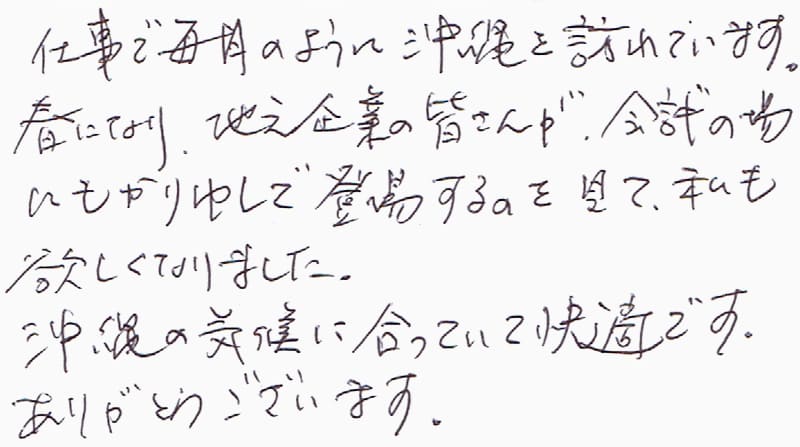 仕事で毎月のように沖縄を訪れています。
春になり、地元企業の皆さんが、会議の場
にもかりゆしで登場するのを見て、私も
欲しくなりました。
沖縄の気候に合っていて快適です。
ありがとうございます。